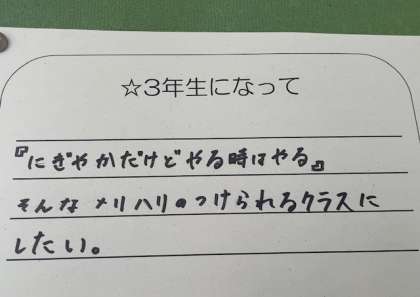 ☆3年生になって
『にぎやかだけどやる時はやる』
そんな メリハリのつけられるクラスに
したい。